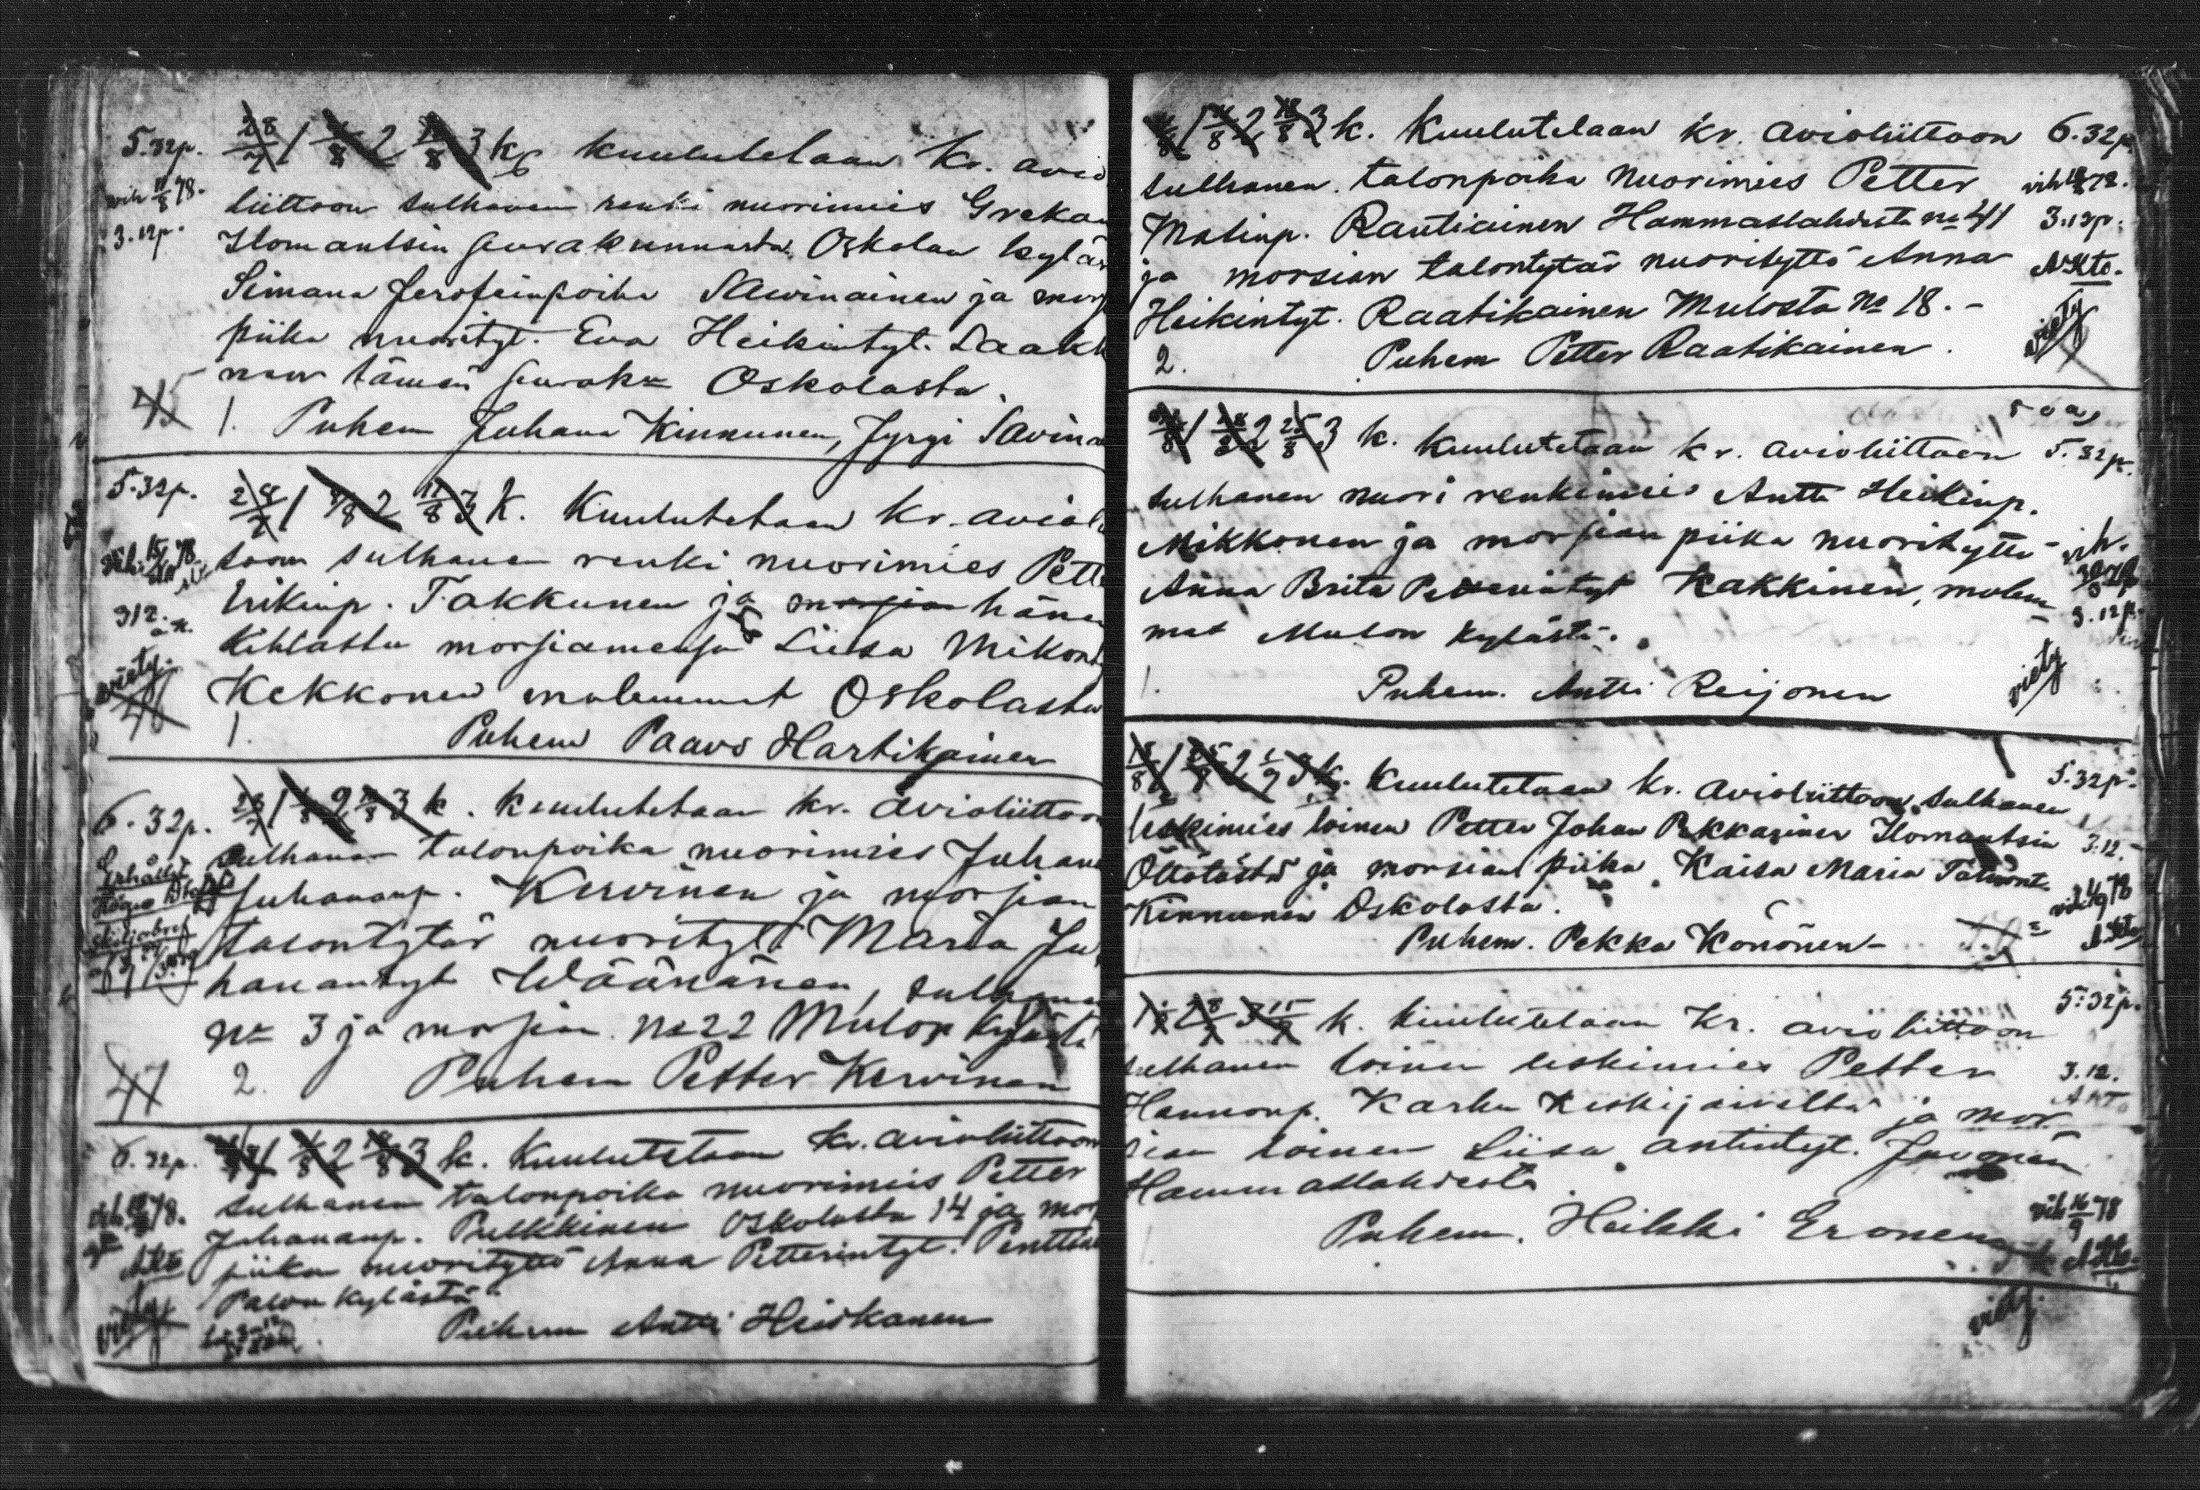 5.32p. 28/7 1 4/8 2 11/8 3 k. kuulutelaan kr. avio
vih 11/8 78. liittoon sulhanen renki nuorimies Grekan
3.12p. Ilomantsin seurakunnasta Oskolan kylän
Simana Jerofeinpoika Sawinainen ja mors
piika nuorityt. Eva Heikintyt. Laakk
nen tämän seurak= Oskolasta.
45 1. Puhem Juhana Kinnunen, Jyrgi Savina
5.32p. 28/7 1 4/8 2 11/8 3 k. Kuulutetaan kr. aviol
toon sulhanen renki nuorimies Pett
Erikinp. Takkunen ja morsian häne
312.
Kihlattu morsiamensa Liisa Mikont
viety. Kekkonen molemmat Oskolasta
46 1. Puhem Paavo Hartikainen
6.32p. 28/7 1 4/8 2 11/8 3 k. kuulutetaan kr. avioliittoon
sulhanen talonpoika nuorimies Juhana
Erhållit
Juhananp. Kervinen ja morsian
talontytär nuorityt. Maria Ju
hanantyt Wäänänen, sulhanen
No 3 ja morsian No 22 Mulon kylästä
47 2. Puhem Petter Kervinen
6.32p. 28/7 1 4/8 2 11/8 3 k. Kuulutetaan kr. avioliittoon
sulhanen talonpoika nuorimies Petter
Juhananp. Pulkkinen Oskolasta 14 ja mors
piika nuorityttö Anna Petterintyt. Penttine
Palon kylästä
viety Puhem Antti Heiskanen
4/8 1 11/8 2 18/8 3 k. Kuulutelaan kr. avioliittoon 6.32p.
sulhanen talonpoika nuorimies Petter
Matinp. Rautiainen Hammaslahdesta No 41 3.12p.
ja morsian talontytär nuorityttö Anna AKto.
Heikintyt. Raatikainen Mulosta No 18. -
viety
2. Puhem Petter Raatikainen.
11/8 1 18/8 2 25/8 3 k. kuulutetaan kr. avioliittoon 5.32p.
sulhanen nuori renkimies Antti Heikinp.
Mikkonen ja morsian piika nuorityttö vih.
Anna Brita Petterintyt Kakkinen, molem
3.12p.
mat Mulon kylästä.
viety
1. Puhem. Antti Reijonen
18/8 1 25/8 2 1/9 3 k. Kuulutetaan kr. avioliittoon sulhanen 5.32p.
leskimies loinen Petter Johan Pekkarinen Ilomantsin 3.12.
ja morsian piika Kaisa Maria
Kinnunen Oskolasta.
Puhem. Pekka Konönen
1 1/9 2 8/9 3 15/9 k. kuulutelaan Kr. avioliittoon 5.32p.
sulhanen loinen leskimies Petter 3.12.
Hannonp. Karhu Keskijärveltä ja mor
sian loinen Liisa Antintyt. Juvonen
Hammaslahdesta
vih 16/9 78
Puhem. Heikki Eronen
viety.